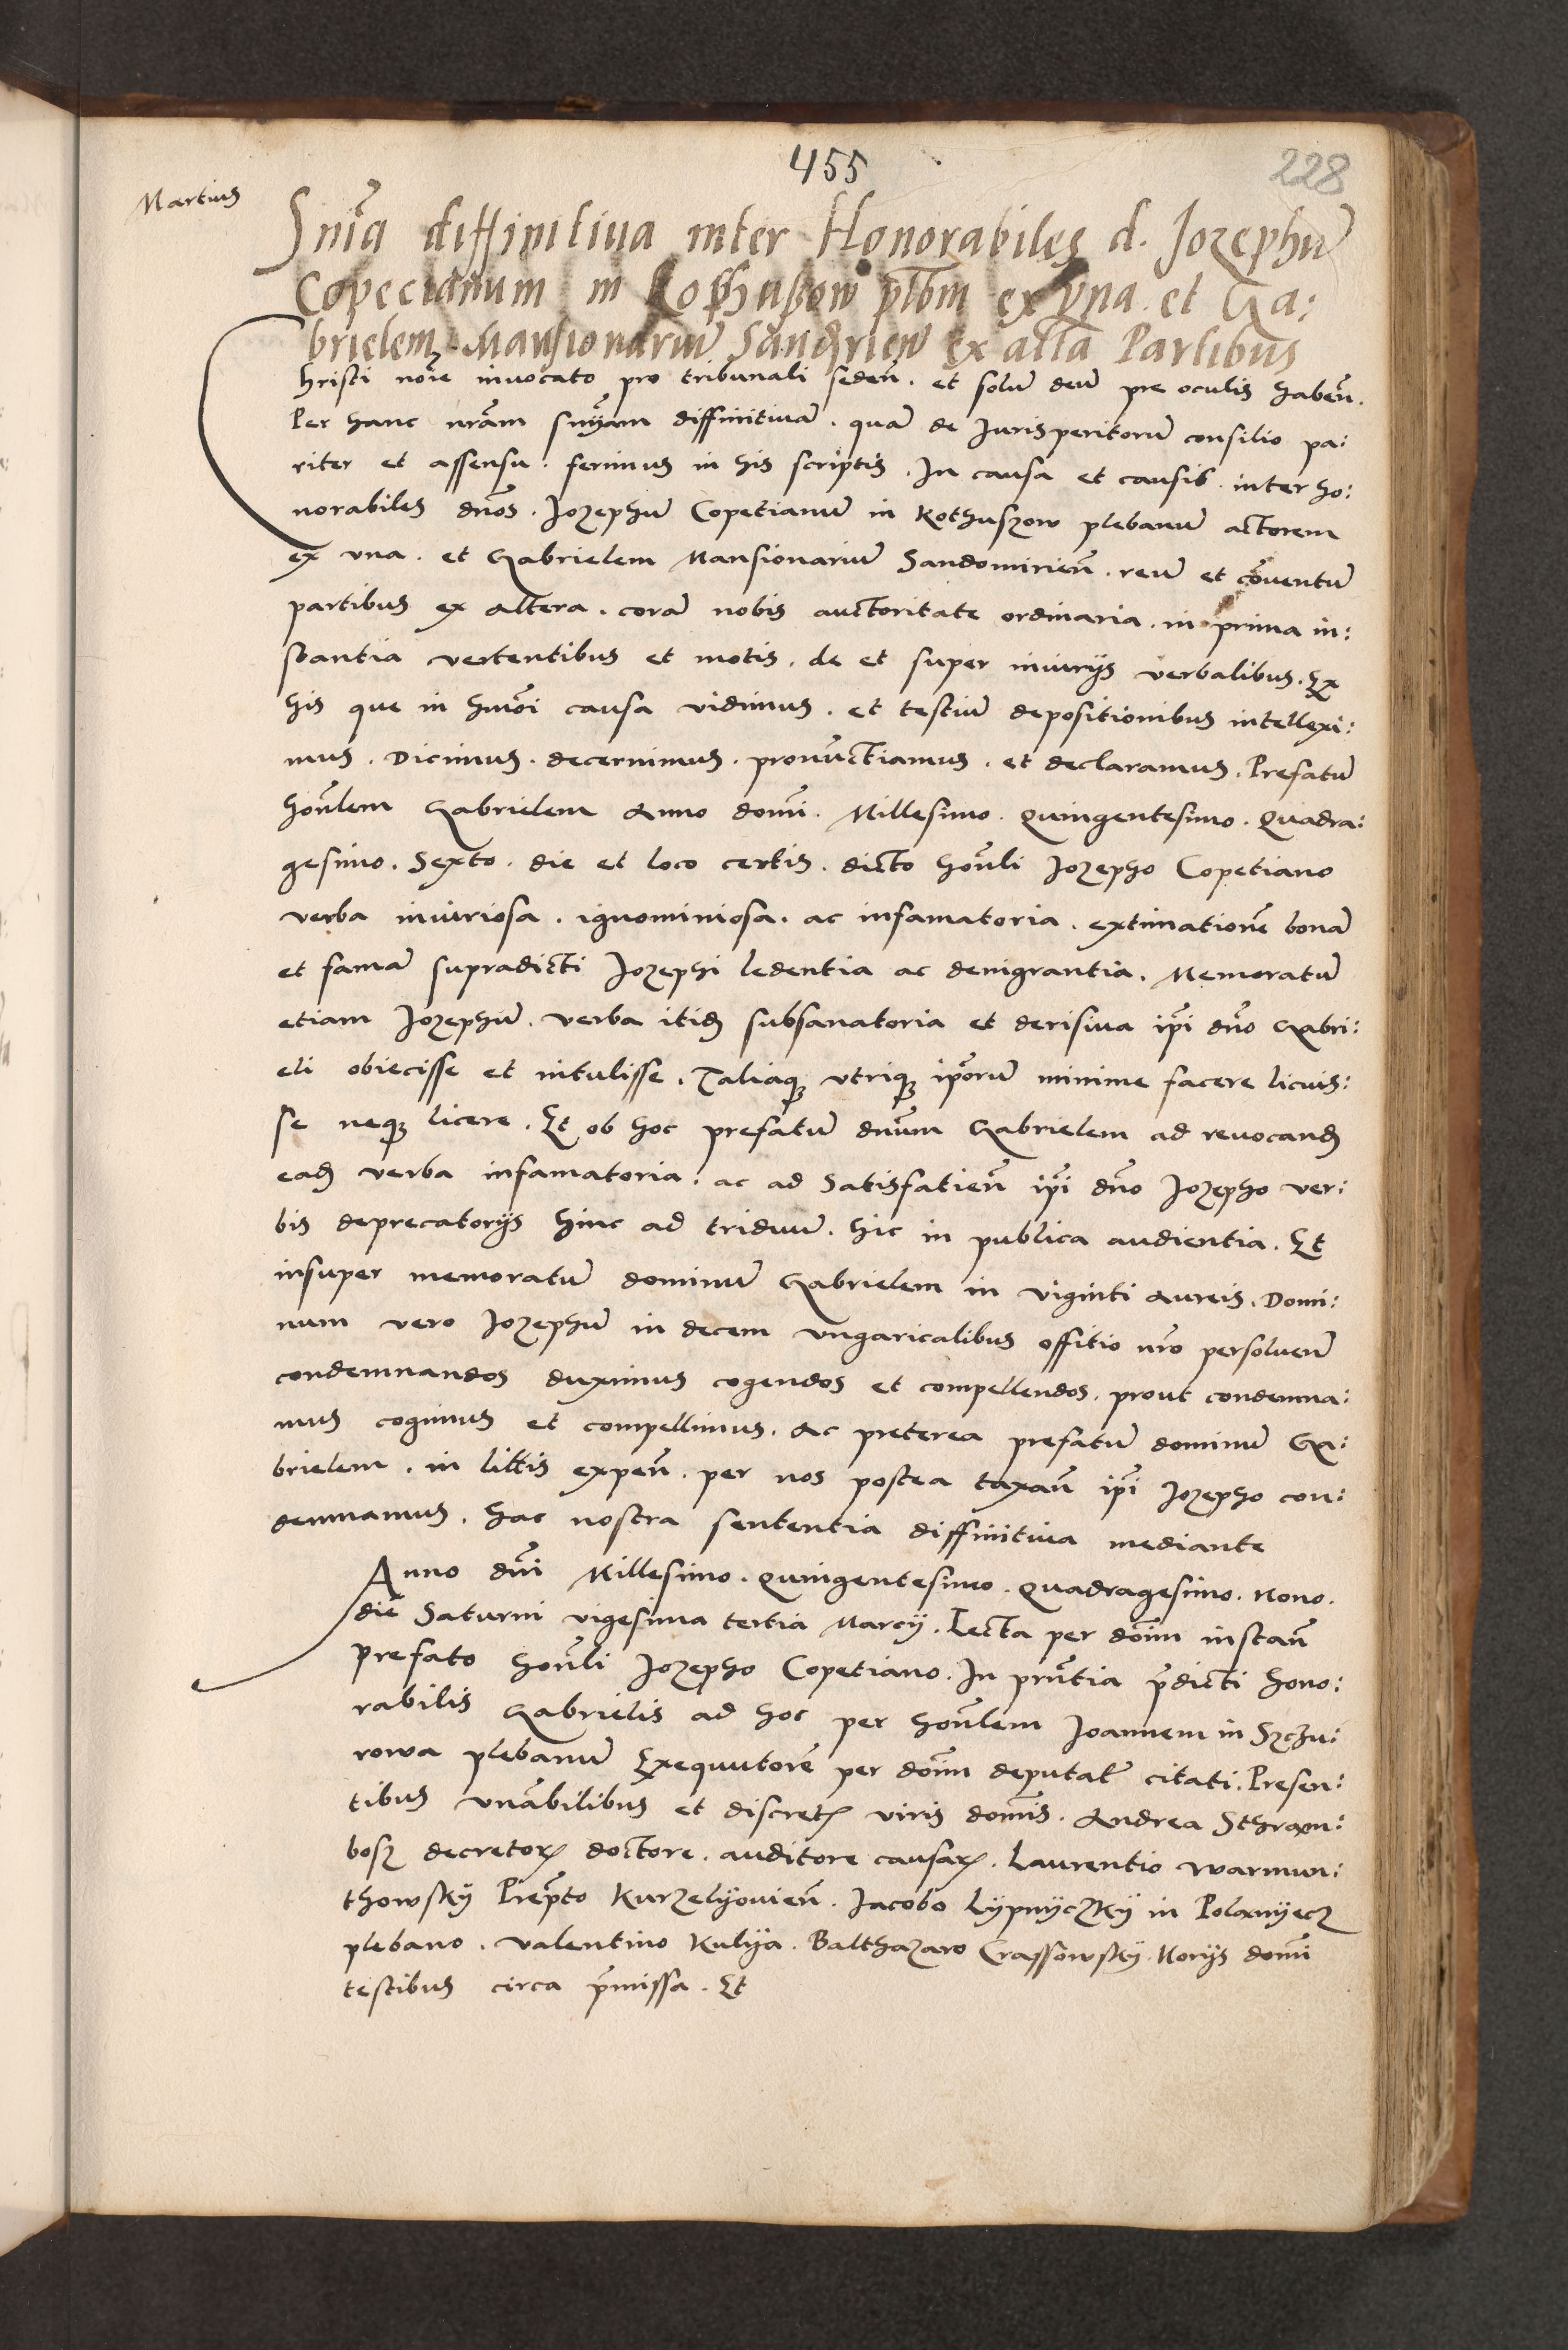 455
228
Martius
Snīa diffinitiua inter Honorabiles d. Jozephū
Copecianum in Kothußow plbm ex vna et Ga:
brielem Mansionariū Sandꝛien̄ ex altā Partibus
hristi noīe inuocato pro tribunali seden̄. et solū deū pre oculis haben̄.
Per hanc nrām snīam diffinitiuā. quā de Jurisperitorū consilio pa:
riter et assensu. ferimus in his scriptis. In causa et causis. inter ho:
norabiles dnōs. Jozephū Copetianū in Kothuszow plebanū actorem
ex vna. et Gabrielem Mansionariū Sandomirien̄. reū et cōuentū
partibus ex altera. corā nobis auctoritate ordinaria. in prima in:
stantia vertentibus et motis. de et super iniurijs verbalibus. Ex
his que in hmōi causa vidimus. et testiū depositionibus intellexi:
mus. Dicimus. decernimus. pronūctiamus. et declaramus. Prefatū
honīlem Gabrielem Anno domī. Millesimo. Quingentesimo. Quadra:
gesimo. Sexto. die et loco certis. dicto honīli Jozepho Copetiano
verba iniuriosa. ignominiosa. ac infamatoria. extimationē bonā
et famā supradicti Jozephi ledentia ac denigrantia. Memoratū
etiam Jozephū. verba itidꝫ subsanatoria et derisiua ipī dnō Gabri:
eli obiecisse et intulisse. Taliaqꝫ vtriqꝫ ipōrum minime facere licuis:
se neqꝫ licere. Et ob hoc prefatū dnūm Gabrielem ad reuocandꝫ
eadꝫ verba infamatoria. ac ad Satisfatien̄ ipī dnō Jozepho ver:
bis deprecatorijs hinc ad triduū. hic in publica audientia. Et
insuper memoratū dominū Gabrielem in viginti Aureis. Domi:
num vero Jozephū in decem vngaricalibus offitio nrō persoluen̄
condemnandos duximus cogendos et compellendos. prout condemna:
mus cogimus et compellimus. Ac preterea prefatū dominū Ga:
brielem. in littis expen̄. per nos postea taxan̄ ipī Jozepho con:
demnamus. hac nostra sententia diffinitiua mediante
Anno dnī Millesimo. Quingentesimo. Quadragesimo. Nono.
die Saturni vigesima tertia Marcij. Lecta per domīm instan̄
prefato honīli Jozepho Copetiano. In prn̄tia p̄dicti hono:
rabilis Gabrielis ad hoc per honīlem Joannem in Szczu:
rowa plebanū Exequutorē per domīm deputat̄ citati. Presen:
tibus vnābilibus et discretꝭ viris domīs. Andrea Sthram:
bosz decretoꝝ doctore. auditore causaꝝ. Laurentio Warmun:
thowsky Prep̄to Kurzelyouien̄. Jacobo Lypnyczky in Polanyecz
plebano. Valentino Kulya. Balthazaro Crassowsky. Norijs domī
testibus circa p̄missa. Et